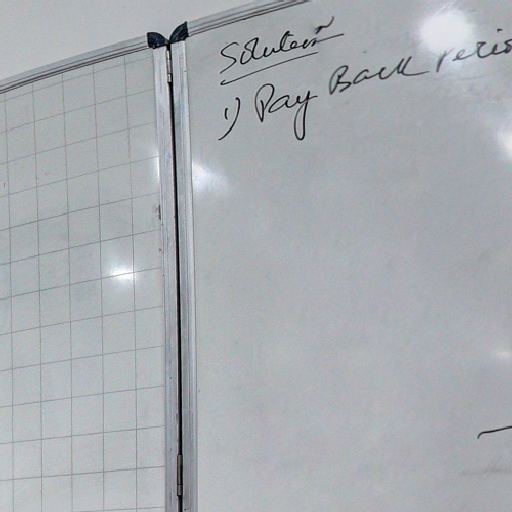 Solution
1) Pay Back Perio